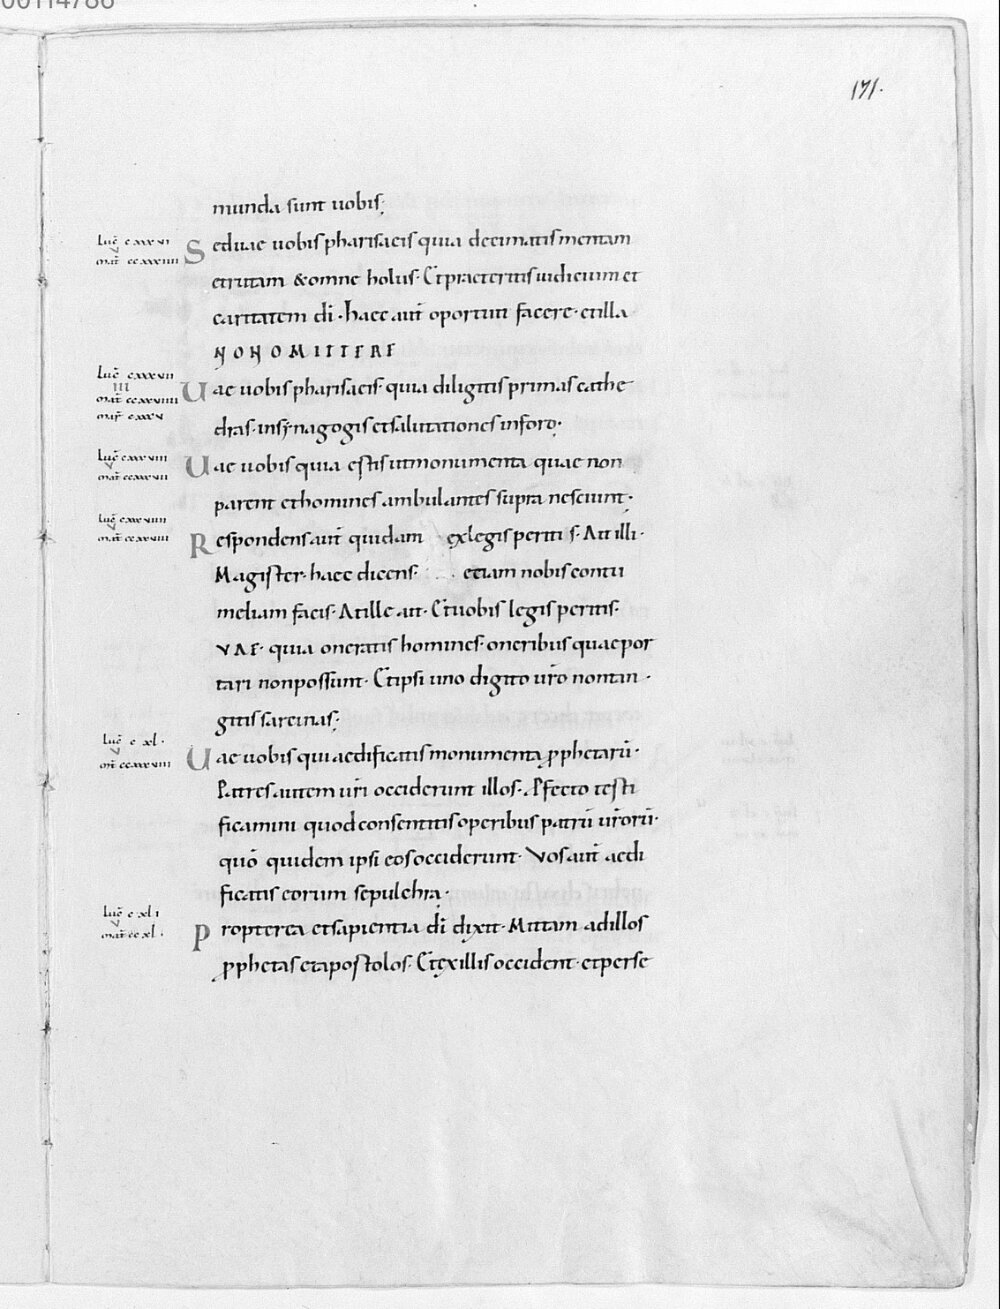 171.
munda sunt uobis;
Luc̄ cxxxvi
V
Mat̄ ccxxxiiii
Seduae uobis pharisaeis quia decimatis mentam
et rutam & omne holus. Et praeteritis iudicium et
caritatem dī. haec aut̄ oportuit facere. et illa
NON OMITTERE
Luc̄ cxxxvii
III
Mar̄ cxxxv
Uae uobis pharisaeis. quia diligitis primas cathe
dras. in synagogis et salutationes in foro.
Luc̄ cxxxviii
V
Uae uobis quia estis ut monumenta quae non
parent et homines ambulantes supra nesciunt.
Luc̄ cxxxviiii
V
Respondens aut̄ quidam ex legis peritis. Ait illi.
Magister. haec dicens. etiam nobis contu
meliam facis. At ille ait. Et uobis legis peritis.
VAE. quia oneratis homines. oneribus quae por
tari non possunt. Et ipsi uno digito ur̄o non tan
gitis sarcinas;
Luc̄ cxl.
V
Uae uobis qui aedificatis monumenta pphetarū.
Patres autem ur̄i occiderunt illos. Pfecto testi
ficamini quod consentitis operibus patrū ur̄orū.
quō quidem ipsi eos occiderunt. Vos aut̄ aedi
ficatis eorum sepulchra.
Luc̄ cxli
V
Mat̄ ccxl.
Propterea et sapientia dī dixit. Mittam ad illos
pphetas et apostolos. Et ex illis occident. et perse